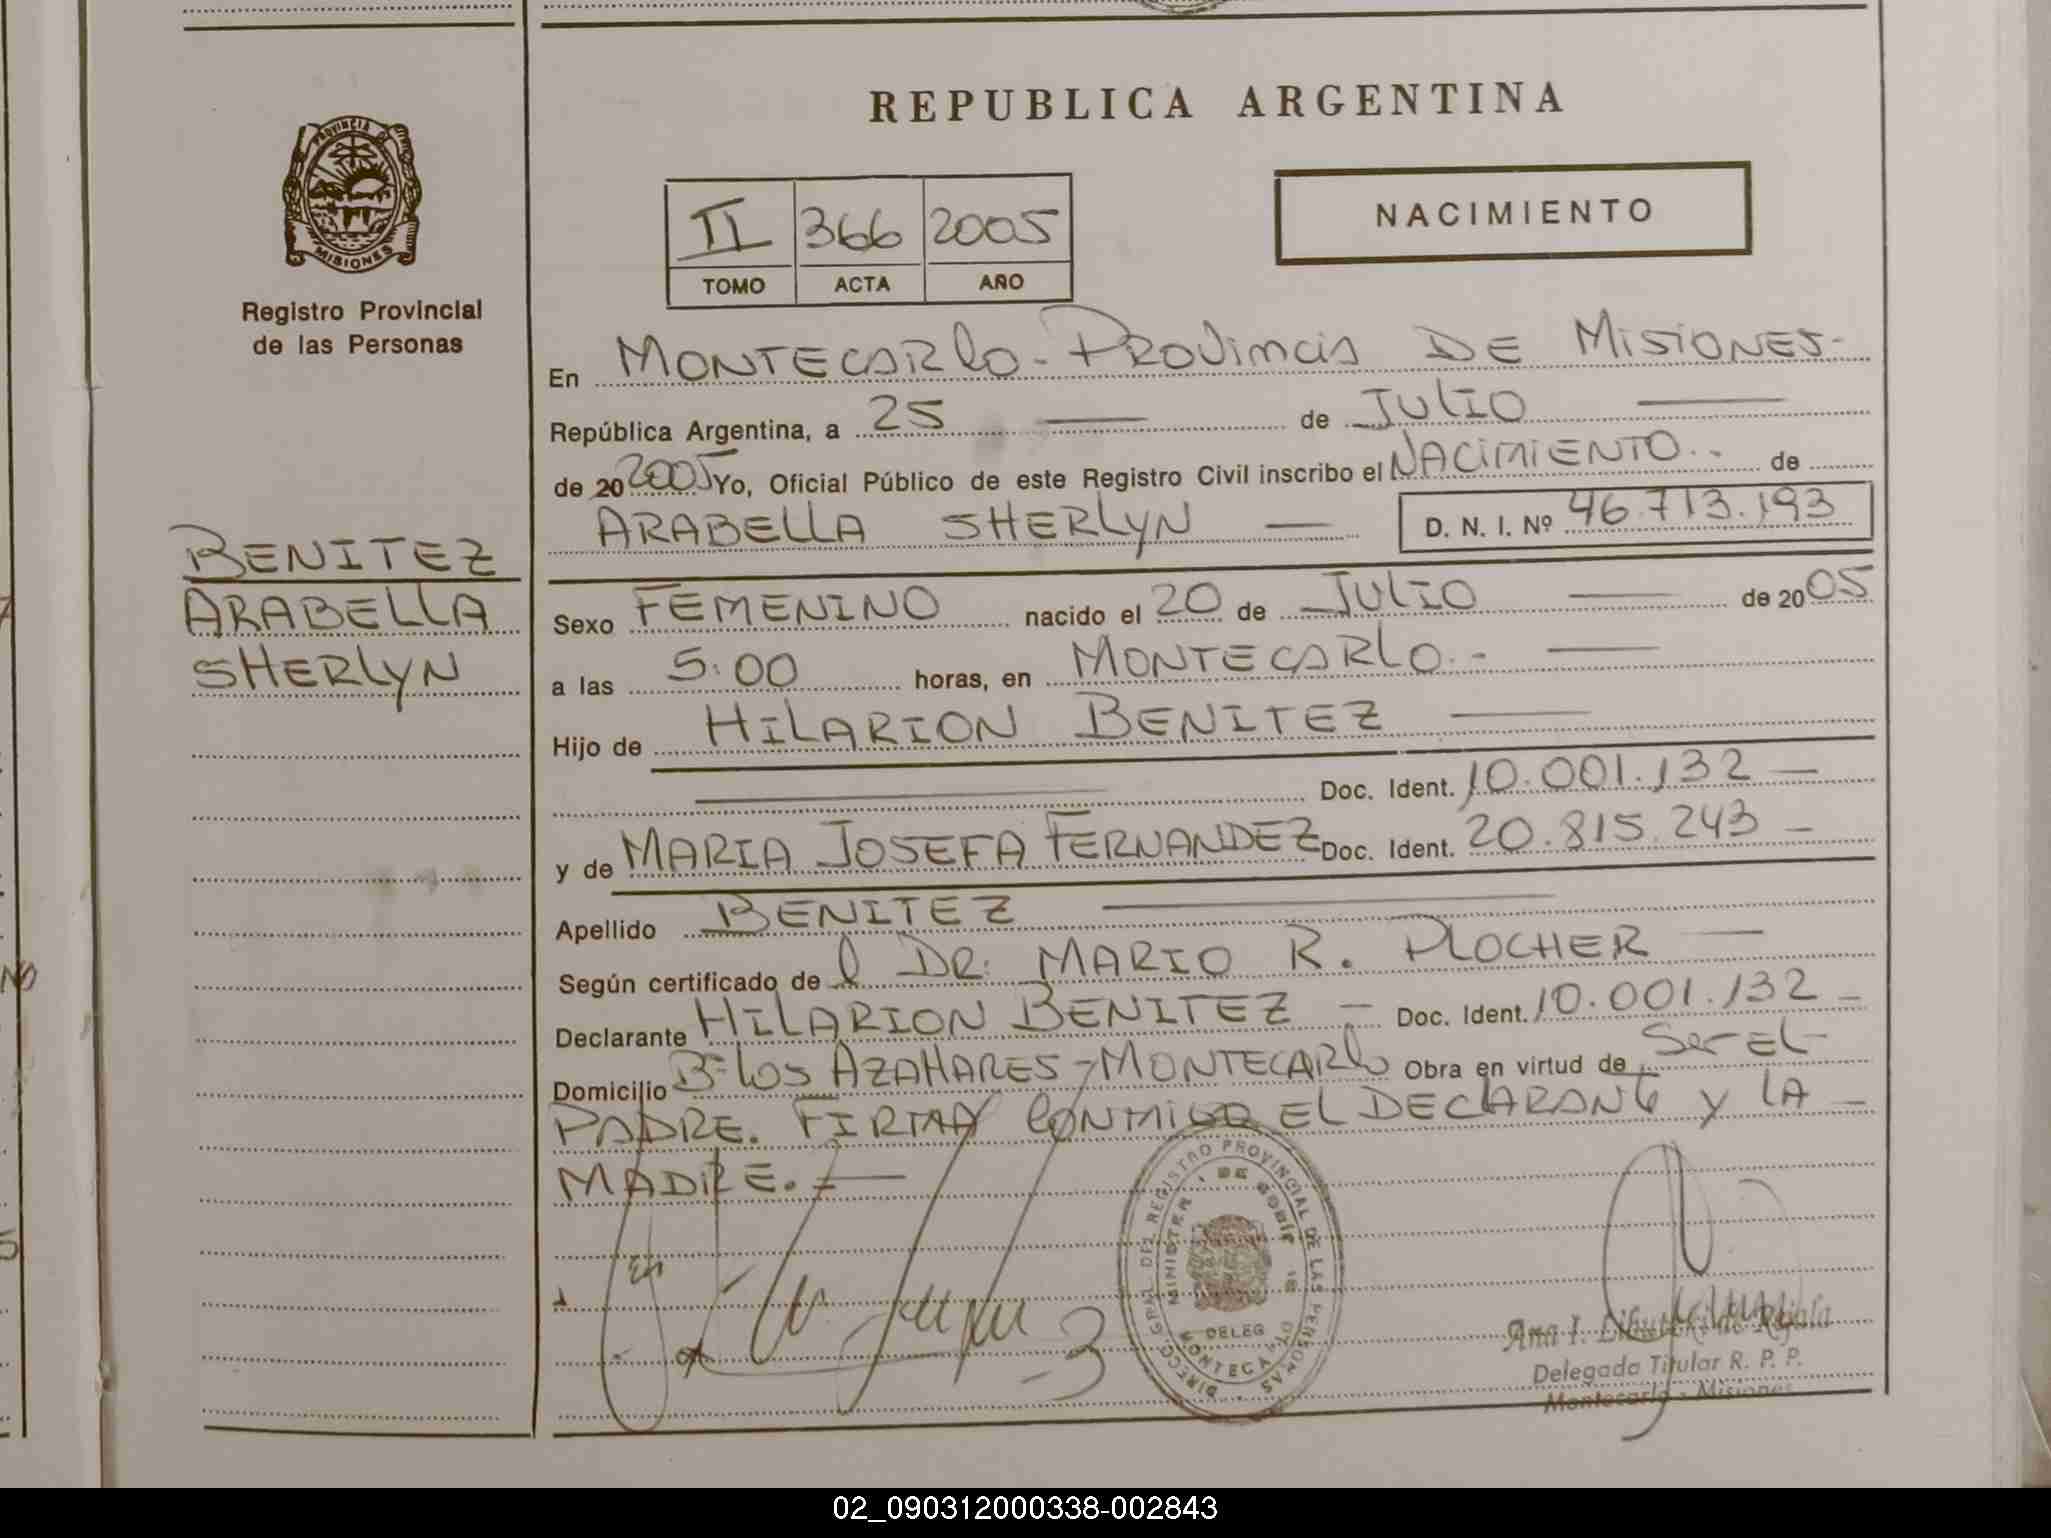 REPUBLICA ARGENTINA
PROVINCIA DE
MISIONES
Registro Provincial
de las Personas
II 366 2005
TOMO ACTA AÑO
NACIMIENTO
En MONTECARLO - PROVINCIA DE MISIONES-
República Argentina, a 25 de JULIO
de 20 2005 Yo, Oficial Público de este Registro Civil inscribo el NACIMIENTO.. de
ARABELLA SHERLYN D. N. I. Nº 46.713.193
BENITEZ
ARABELLA
SHERLYN
Sexo FEMENINO nacido el 20 de JULIO de 20 05
a las 5:00 horas, en MONTECARLO.-
Hijo de HILARION BENITEZ
Doc. Ident. 10.001.132 —
y de MARIA JOSEFA FERNANDEZ Doc. Ident. 20.815.243 —
Apellido BENITEZ
Según certificado de l DR. MARIO R. PLOCHER
Declarante HILARION BENITEZ — Doc. Ident. 10.001.132 —
Domicilio Bº LOS AZAHARES - MONTECARLO Obra en virtud de Ser EL
PADRE. FIRMAN CONMIGO EL DECLARANTE Y LA —
MADRE. —
DIRECC. GRAL DEL REGISTRO PROVINCIAL DE LAS PERSONAS
MINISTER. DE GOB
DELEG
MONTECA
Ana I.
Delegada Titular R. P. P.
Montecarlo - Misiones
02_090312000338-002843